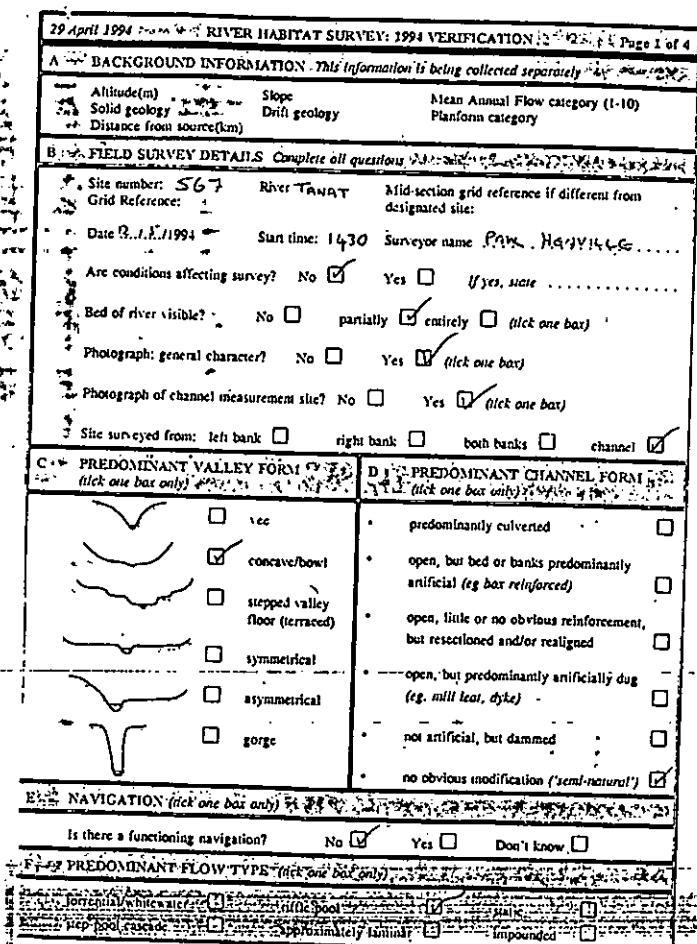 29 April 1994 RIVER HABITAT SURVEY: 1994 VERIFICATION Page 1 of 4
A BACKGROUND INFORMATION This information is being collected separately
Altitude(m) Slope Mean Annual Flow category (1-10)
Solid geology Drift geology Planform category
Distance from source(km)
B FIELD SURVEY DETAILS Complete all questions
Site number: 567 River TANAT Mid-section grid reference if different from
Grid Reference: designated site:
Date /1994 Start time: 1430 Surveyor name
Are conditions affecting survey? No ☑ Yes ☐ If yes, state ..............
Bed of river visible? No ☐ partially ☑ entirely ☐ (tick one box)
Photograph: general character? No ☐ Yes ☑ (tick one box)
Photograph of channel measurement site? No ☐ Yes ☑ (tick one box)
Site surveyed from: left bank ☐ right bank ☐ both banks ☐ channel ☑
C PREDOMINANT VALLEY FORM
(tick one box only)
☐ vee
☑ concave/bowl
☐ stepped valley
floor (terraced)
☐ symmetrical
☐ asymmetrical
☐ gorge
D PREDOMINANT CHANNEL FORM
(tick one box only)
• predominantly culverted ☐
• open, but bed or banks predominantly
artificial (eg box reinforced) ☐
• open, little or no obvious reinforcement,
but resectioned and/or realigned ☐
• open, but predominantly artificially dug
(eg. mill leat, dyke) ☐
• not artificial, but dammed ☐
• no obvious modification ('semi-natural') ☑
E NAVIGATION (tick one box only)
Is there a functioning navigation? No ☑ Yes ☐ Don't know ☐
F PREDOMINANT FLOW TYPE (tick one box only)
torrential/whitewater ☐ riffle pool ☑ static ☐
step pool cascade ☐ approximately laminar ☐ impounded ☐